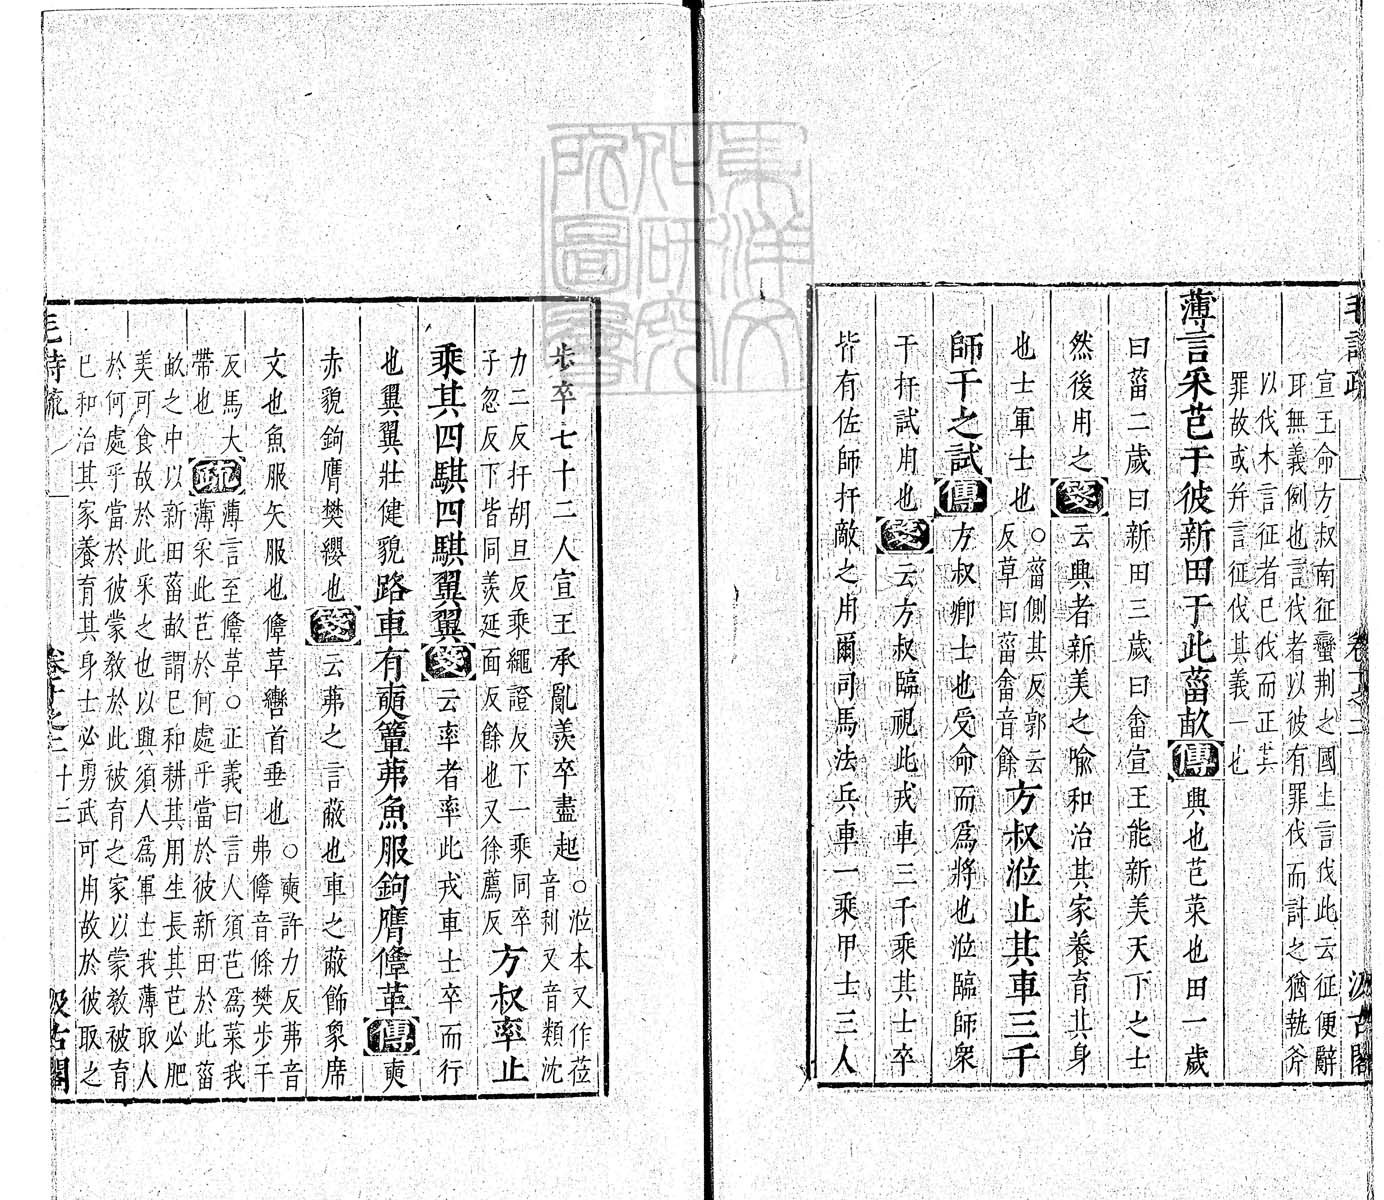 毛詩疏
卷十之二
汲古閣
宣王命方叔南征蠻荆之國上言伐此云征便辭
耳無義例也言伐者以彼有罪伐而討之猶執斧
以伐木言征者已伐而正其
罪故或并言征伐其義一也
薄言采芑于彼新田于此菑畝傳興也芑菜也田一歲
曰菑二歲曰新田三歲曰畬宣王能新美天下之士
然後用之箋云興者新美之喻和治其家養育其身
也士軍士也○菑側其反郭云反草曰菑畬音餘方叔涖止其車三千
師干之試傳方叔卿士也受命而爲將也涖臨師衆
干扞試用也箋云方叔臨視此戎車三千乘其士卒
皆有佐師扞敵之用爾司馬法兵車一乘甲士三人
步卒七十二人宣王承亂羨卒盡起○涖本又作莅音利又音類沈
力二反扞胡旦反乘繩證反下一乘同卒
子忽反下皆同羨延面反餘也又徐薦反方叔率止
乘其四騏四騏翼翼箋云率者率此戎車士卒而行
也翼翼壯健貌路車有奭簟茀魚服鉤膺鞗革傳奭
赤貌鉤膺樊纓也箋云茀之言蔽也車之蔽飾象席
文也魚服矢服也鞗革轡首垂也○奭許力反茀音弗鞗音條樊步干
反馬大帶也疏薄言至鞗革○正義曰言人須芑爲菜我
薄采此芑於何處乎當於彼新田於此菑
畝之中以新田菑畝謂已和耕其用生長其芑必肥
美可食故於此采之也以興須人爲軍士我薄取人
於何處乎當於彼蒙教於此被育之家以蒙教被育
已和治其家養育其身士必勇武可用故於彼取之
毛詩疏
卷十之二
十二
汲古閣
東洋文化研究所圖書